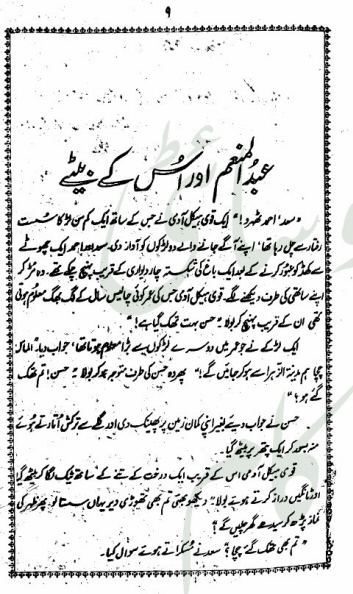 ۹
عبدُالمنعم اور اُس کے بیٹے
"سعد! احمد ٹھہرو!" ایک قوی ہیکل آدمی نے جس کے ساتھ ایک کم سن لڑکا سست
رفتار سے چل رہا تھا، اپنے آگے جانے والے دو لڑکوں کو آواز دی۔ سعد اور احمد ایک چھوٹے
سے کھڈ کو عبور کرنے کے بعد ایک باغ کی شکستہ چار دیواری کے قریب پہنچ چکے تھے۔ وہ مڑ کر
اپنے ساتھی کی طرف دیکھنے لگے۔ قوی ہیکل آدمی جس کی عمر کوئی چالیس سال کے لگ بھگ معلوم ہوتی
تھی ان کے قریب پہنچ کر بولا "حسن بہت تھک گیا ہے!"
ایک لڑکے نے جو عمر میں دوسرے لڑکوں سے بڑا معلوم ہوتا تھا، جواب دیا "الماس
چچا ہم مدینۃ الزہرا سے ہو کر جائیں گے!" پھر وہ حسن کی طرف متوجہ ہو کر بولا "حسن! تم تھک
گئے ہو؟"
حسن نے جواب دیئے بغیر اپنی کمان زمین پر پھینک دی اور گلے سے ترکش اُتارتے ہوئے
منہ بسور کر ایک پتھر پر بیٹھ گیا۔
قوی ہیکل آدمی اس کے قریب ایک درخت کے تنے کے ساتھ ٹیک لگا کر بیٹھ گیا
اور ٹانگیں دراز کرتے ہوئے بولا "دیکھو بھئی تم بھی تھوڑی دیر یہاں سستا لو پھر ظہر کی
نماز پڑھ کر سیدھے گھر چلیں گے؟
"تم بھی تھک گئے چچا؟" سعد نے مسکراتے ہوئے سوال کیا۔